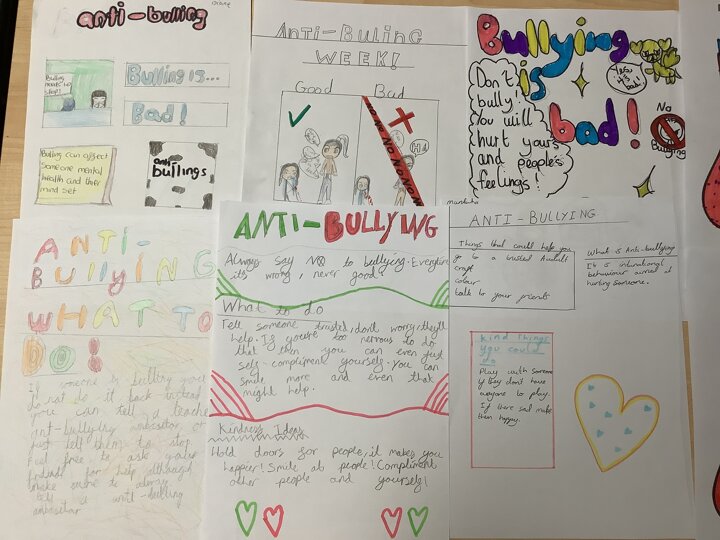 anti-bulling
Bulling needs to stop!
Bulling is...
Bad!
Bulling can affect
someone mental
health and their
mind set
anti
bullings
Anti-Buling
WEEK!
Good
Bad
No No No No No No
HA
Bullying
is
bad!
Don't
bully!
You will
hurt yours
and people's
feelings!
Yes,
it is
bad!
No
Bullying
ANTI-
BullyiNG
WHAT TO
DO!
If someone is bullling you
do not do it back instead
you can tell a teacher
int-bullying ambasitor or
just tell them to stop.
Feel free to ask your
friends for help although
make sure to always
tell a anti-bullying
ambasitor
ANTI-BULLYING
Always say NO to bullying. Everytime
it's wrong, never good.
What to do
Tell someone trusted, don't worry, they'll
help. If you're too nervous to do
that then you can even just
self-compliment yourself. You can
smile more and even that
might help.
Kindness Ideas
Hold doors for people, it makes you
happier! Smile at people! Compliment
other people and yourself!
ANTI-BULLYING
Things that could help you
go to a trusted Adult
colour
talk to your friends
What is Anti-bullying
It is intentional
behaviour aimed at
hurting someone.
Kind things
you could
do
Play with someone
if they don't have
anyone to play.
If there sad make
them happy.